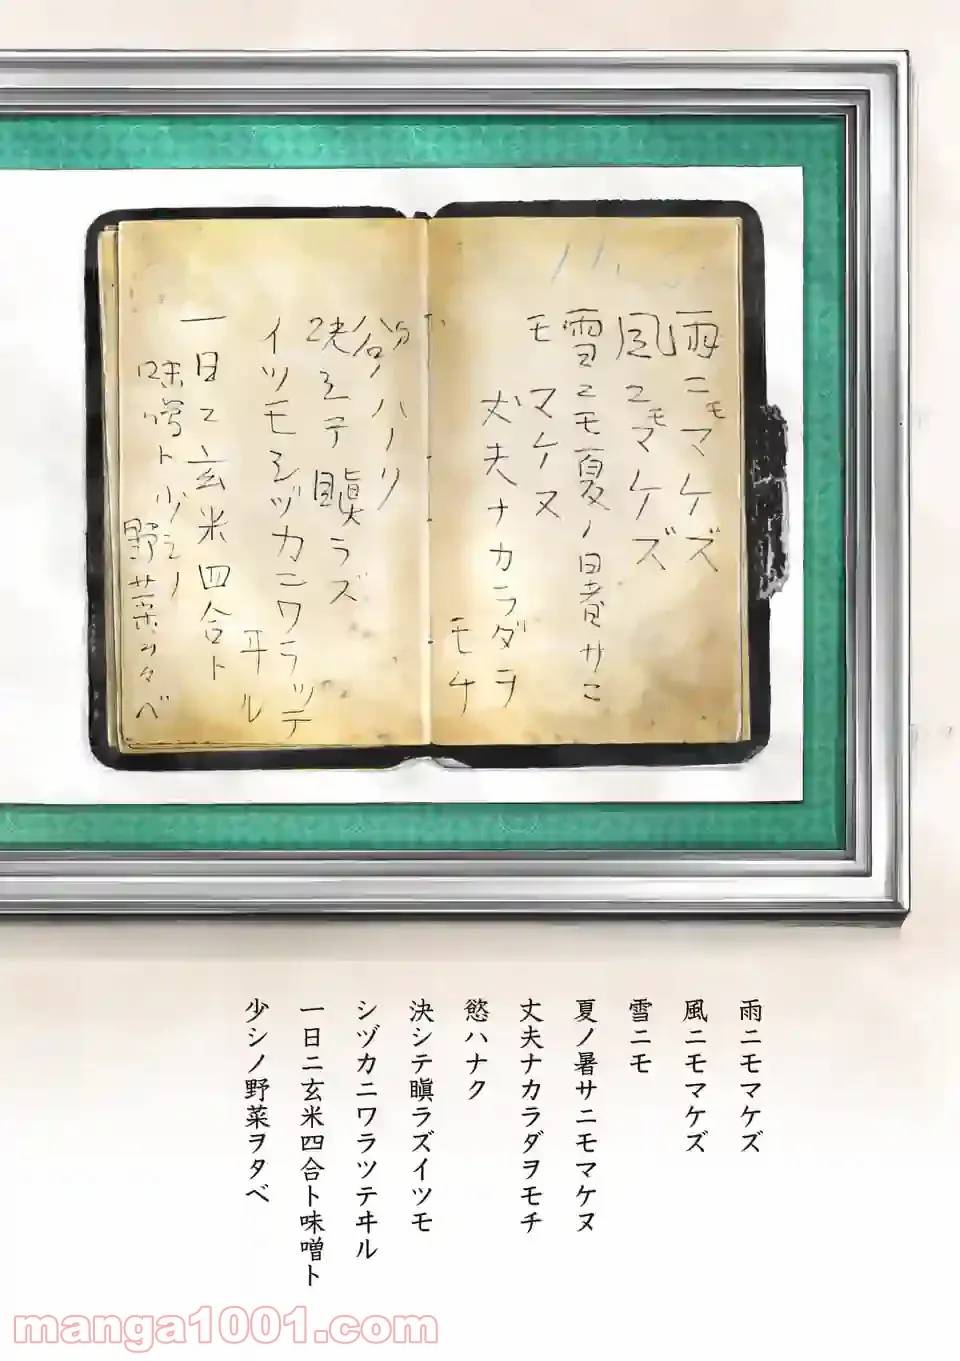 雨ニモマケズ
風ニモマケズ
雪ニモ夏ノ暑サニ
モ マケヌ
丈夫ナカラダヲ
モチ
慾ハナク
決シテ瞋ラズ
イツモシヅカニワラッテ
ヰル
一日ニ玄米四合ト
味噌ト少シノ
野菜ヲタベ
雨ニモマケズ
風ニモマケズ
雪ニモ
夏ノ暑サニモマケヌ
丈夫ナカラダヲモチ
慾ハナク
決シテ瞋ラズイツモ
シヅカニワラツテヰル
一日ニ玄米四合ト味噌ト
少シノ野菜ヲタベ
manga1001.com